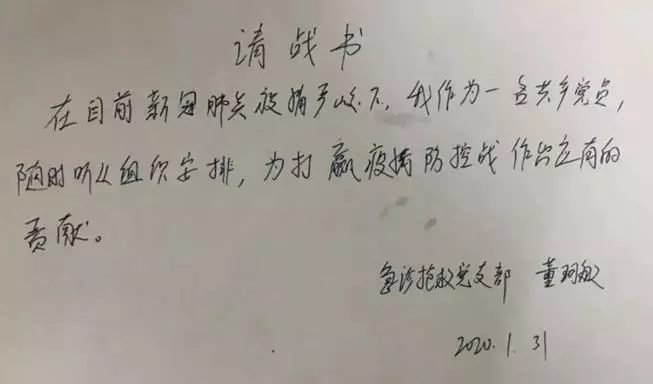 请战书
在目前新冠肺炎疫情严峻下，我作为一名共产党员，
随时听从组织安排，为打赢疫情防控战作出应有的
贡献。
急诊抢救党支部 董
2020.1.31